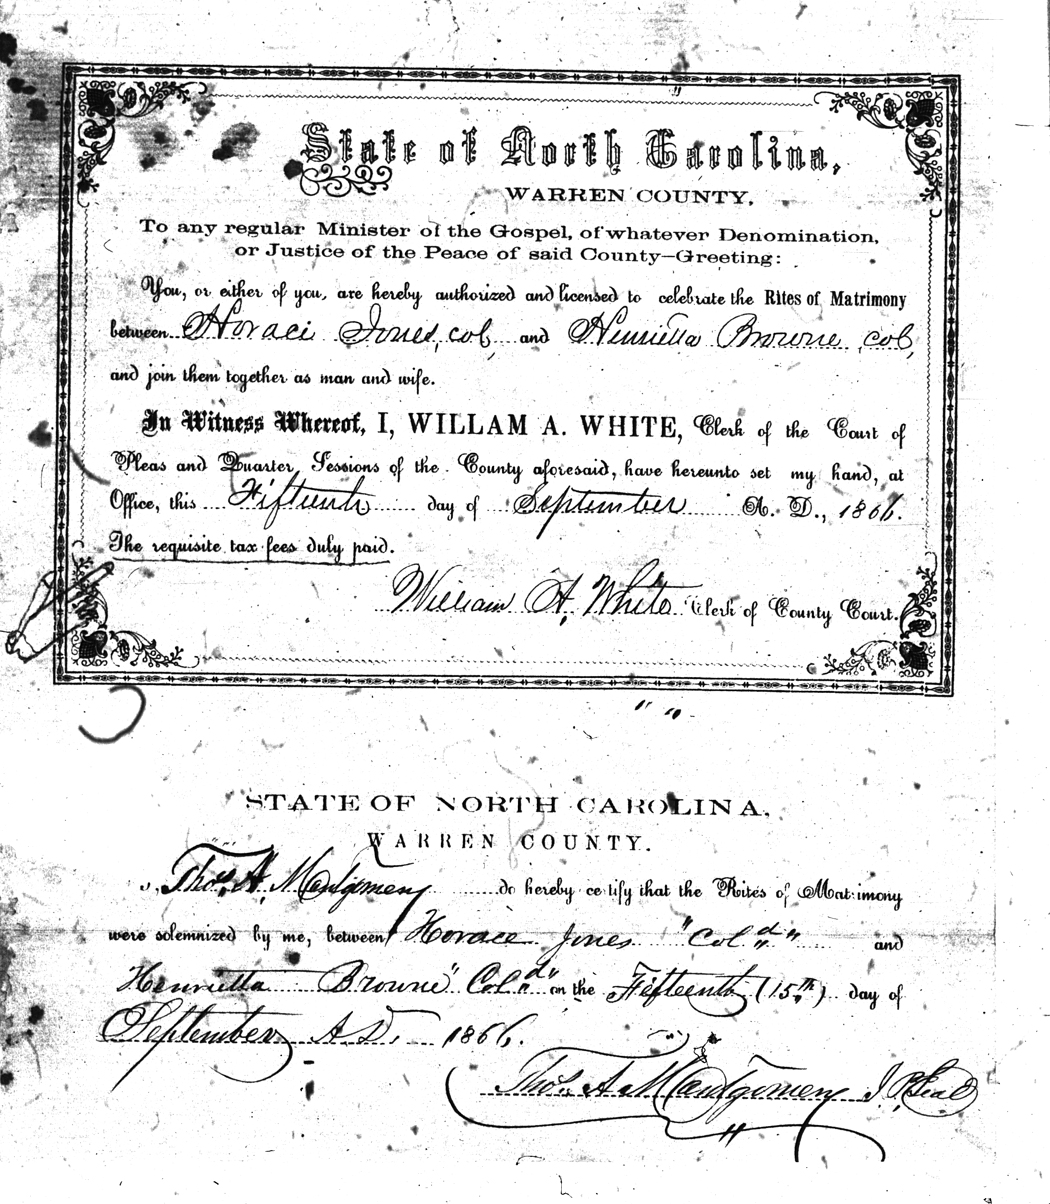 State of North Carolina,
WARREN COUNTY.
To any regular Minister of the Gospel, of whatever Denomination,
or Justice of the Peace of said County—Greeting:
You, or either of you, are hereby authorized and licensed to celebrate the Rites of Matrimony
between Horace Jones, col, and Henrietta Browne, col,
and join them together as man and wife.
In Witness Whereof, I, WILLAM A. WHITE, Clerk of the Court of
Pleas and Quarter Sessions of the County aforesaid, have hereunto set my hand, at
Office, this Fifteenth day of September A. D., 1866.
The requisite tax fees duly paid.
William A. White Clerk of County Court.
STATE OF NORTH CAROLINA,
WARREN COUNTY.
I, Thos. A. Montgomery do hereby certify that the Rites of Matrimony
were solemnized by me, between Horace Jones "Col d" and
Henrietta Browne "Col d" on the Fifteenth (15th) day of
September A.D. 1866.
Thos. A. Montgomery J.P. Seal